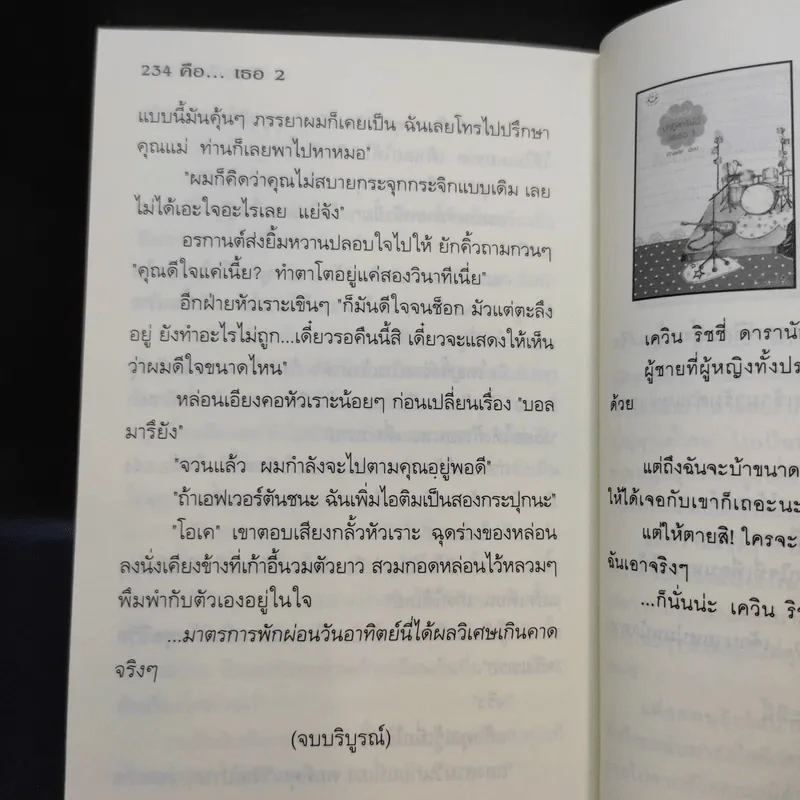 234 คือ... เธอ 2
แบบนี้มันคุ้นๆ ภรรยาผมก็เคยเป็น ฉันเลยโทรไปปรึกษา
คุณแม่ ท่านก็เลยพาไปหาหมอ"
"ผมก็คิดว่าคุณไม่สบายกระจุกกระจิกแบบเดิม เลย
ไม่ได้เอะใจอะไรเลย แย่จัง"
อรกานต์ส่งยิ้มหวานปลอบใจไปให้ ยักคิ้วถามกวนๆ
"คุณดีใจแค่เนี้ย? ทำตาโตอยู่แค่สองวินาทีเนี่ย"
อีกฝ่ายหัวเราะเขินๆ "ก็มันดีใจจนช็อก มัวแต่ตะลึง
อยู่ ยังทำอะไรไม่ถูก...เดี๋ยวรอคืนนี้สิ เดี๋ยวจะแสดงให้เห็น
ว่าผมดีใจขนาดไหน"
หล่อนเอียงคอหัวเราะน้อยๆ ก่อนเปลี่ยนเรื่อง "บอล
มารึยัง"
"จวนแล้ว ผมกำลังจะไปตามคุณอยู่พอดี"
"ถ้าเอฟเวอร์ตันชนะ ฉันเพิ่มไอติมเป็นสองกระปุกนะ"
"โอเค" เขาตอบเสียงกลั้วหัวเราะ ฉุดร่างของหล่อน
ลงนั่งเคียงข้างที่เก้าอี้นวมตัวยาว สวมกอดหล่อนไว้หลวมๆ
พึมพำกับตัวเองอยู่ในใจ
...มาตรการพักผ่อนวันอาทิตย์นี่ได้ผลวิเศษเกินคาด
จริงๆ
(จบบริบูรณ์)
เควิน ริชชี่ ดารานั
ผู้ชายที่ผู้หญิงทั้งปร
ด้วย
แต่ถึงฉันจะบ้าขนาด
ให้ได้เจอกับเขาก็เถอะนะ
แต่ให้ตายสิ! ใครจะ
ฉันเอาจริงๆ
...ก็นั่นน่ะ เควิน ริช